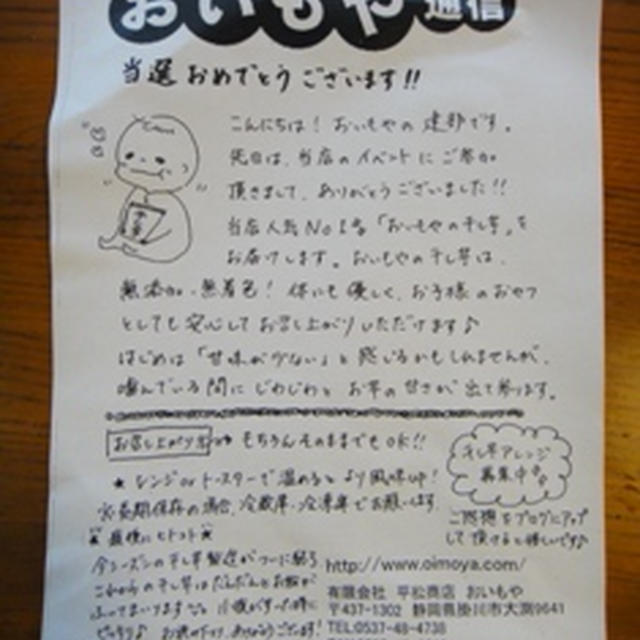 おいもや通信
当選おめでとうございます!!
こんにちは!おいもやの建部です。
先日は、当店のイベントにご参加
頂きまして、ありがとうございました!!
当店人気No1名「おいもやの干し芋」を
お届けします。おいもやの干し芋は、
無添加・無着色!体にも優しく、お子様のおやつ
としても安心してお召し上がりいただけます♪
はじめは「甘味が少ない」と感じるかもしれませんが、
噛んでいる間にじわじわとお芋の甘さが出て参ります。
お召し上がり方 もちろんそのままでもOK!!
★レンジorトースターで温めるとより風味UP!
※長期保存の場合、冷蔵庫・冷凍庫でお願います。
干し芋アレンジ
募集中
ご感想をブログにアップ
して頂けると嬉しいです♪
★最後にヒトコト★
今シーズンの干し芋製造がついに終了
これからの干し芋はだんだんとお粉が
ふってまいります
http://www.oimoya.com/
有限会社 平松商店 おいもや
〒437-1302 静岡県掛川市大渕9641
TEL:0537-48-4738